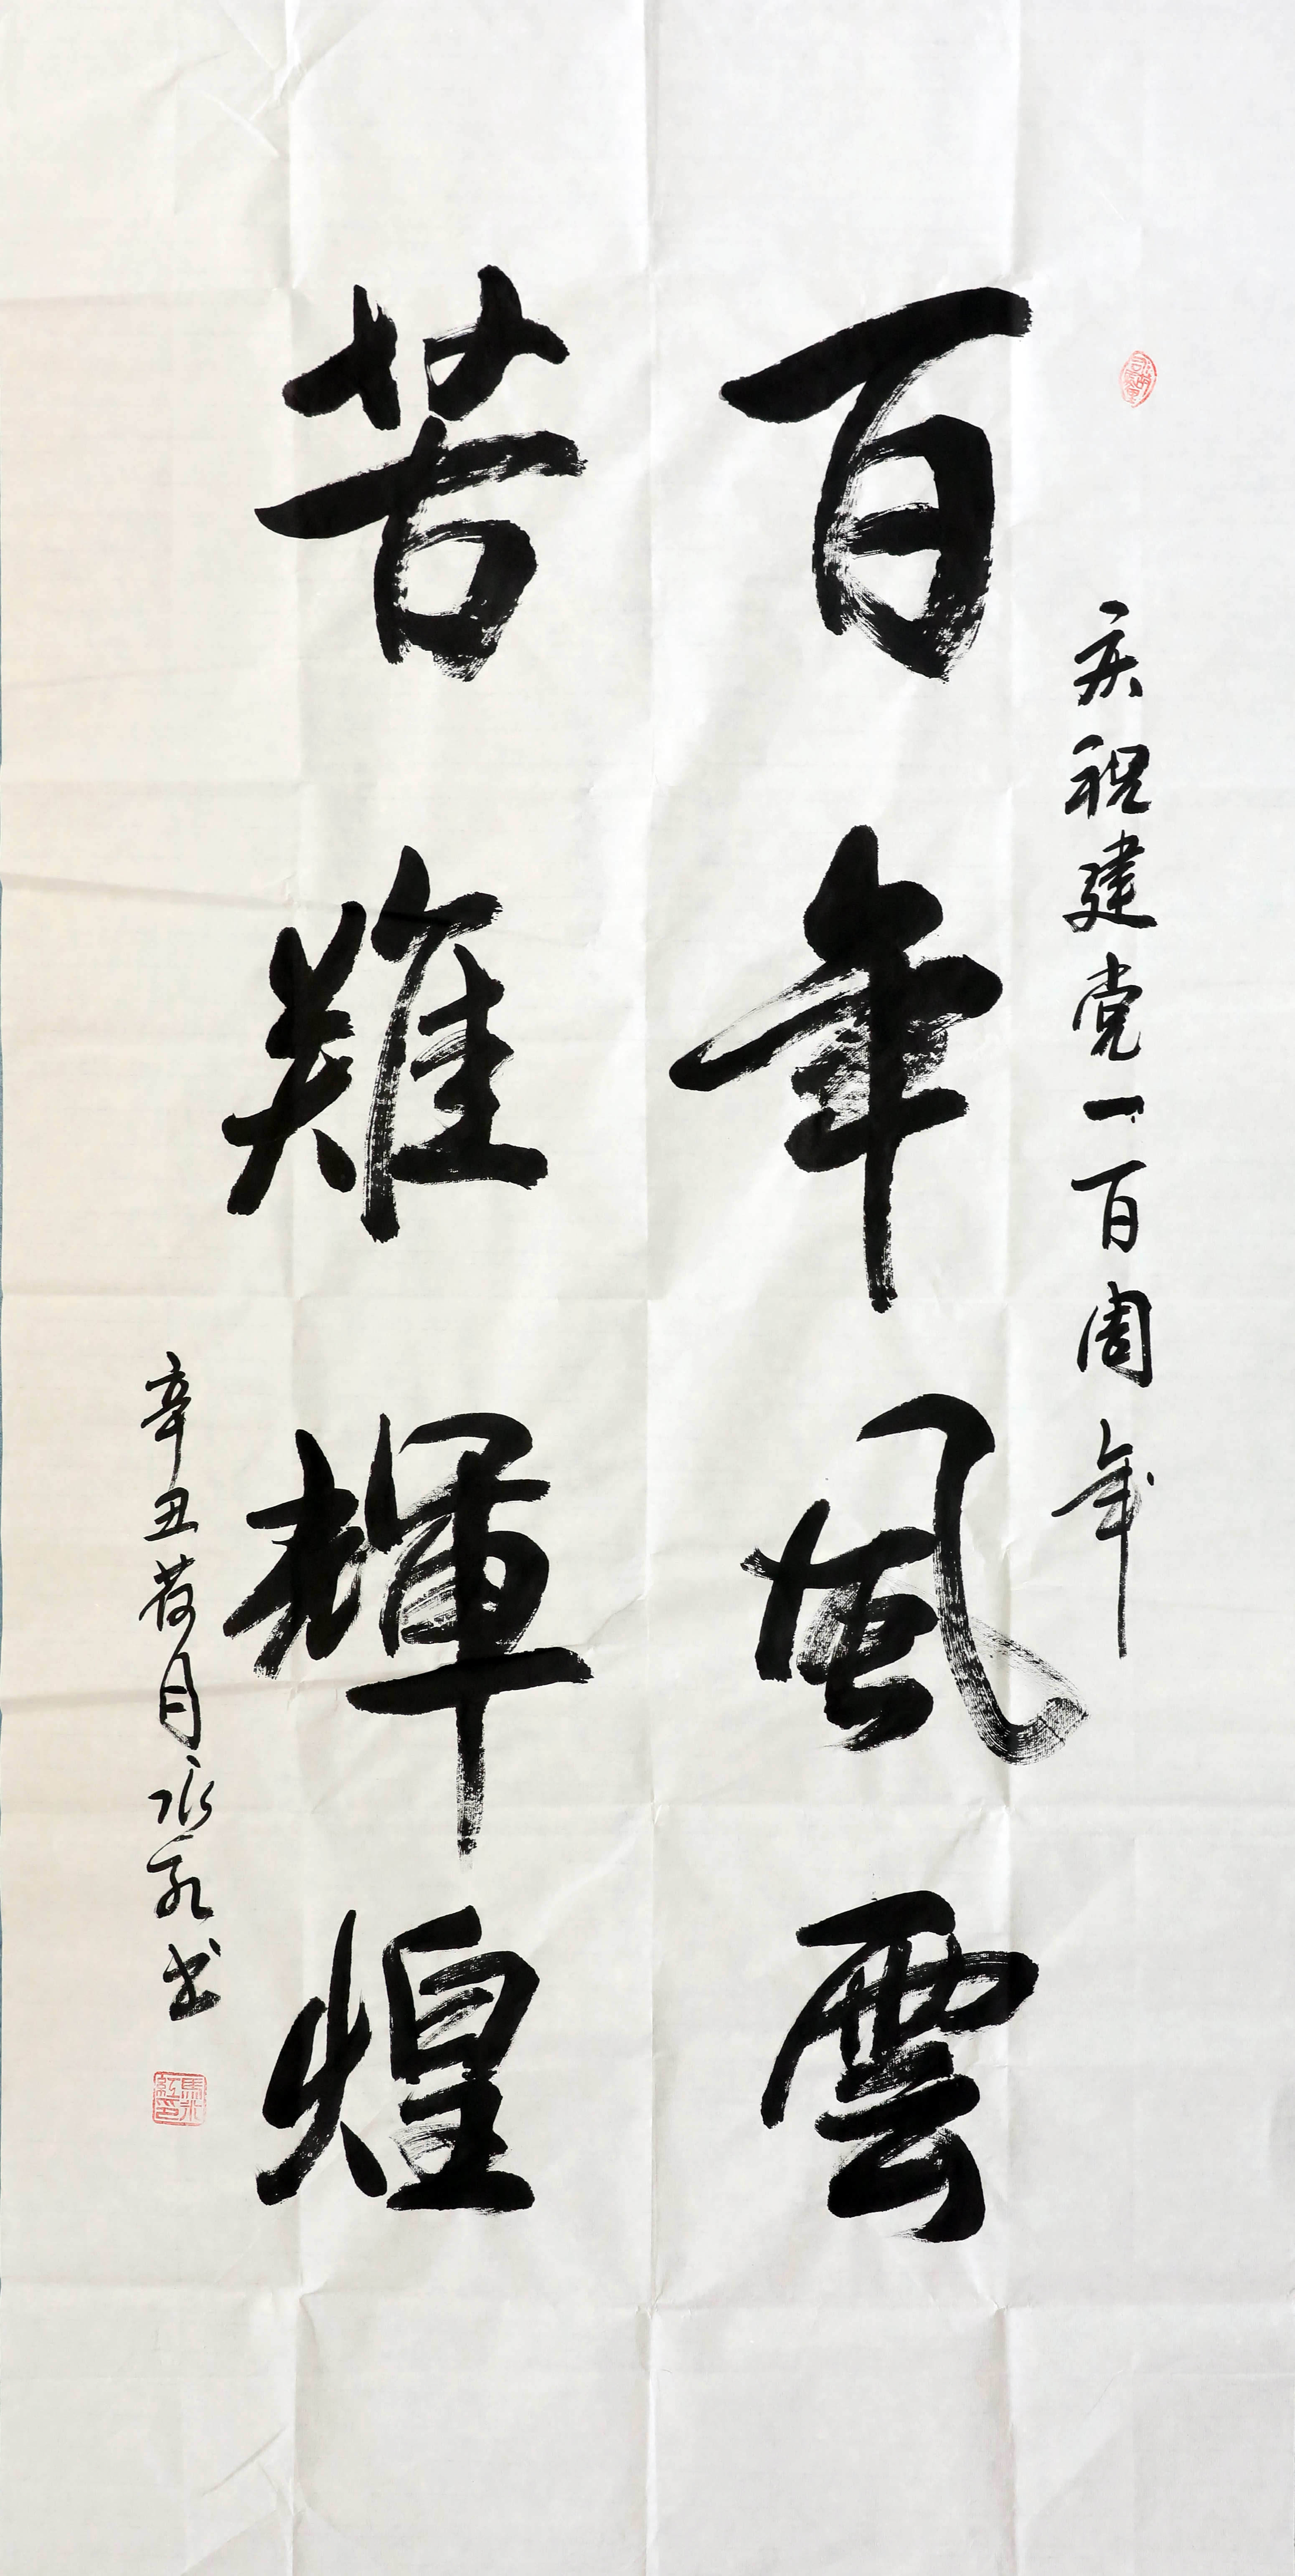 庆祝建党一百周年
百年風雲
苦難輝煌
辛丑荷月永红书